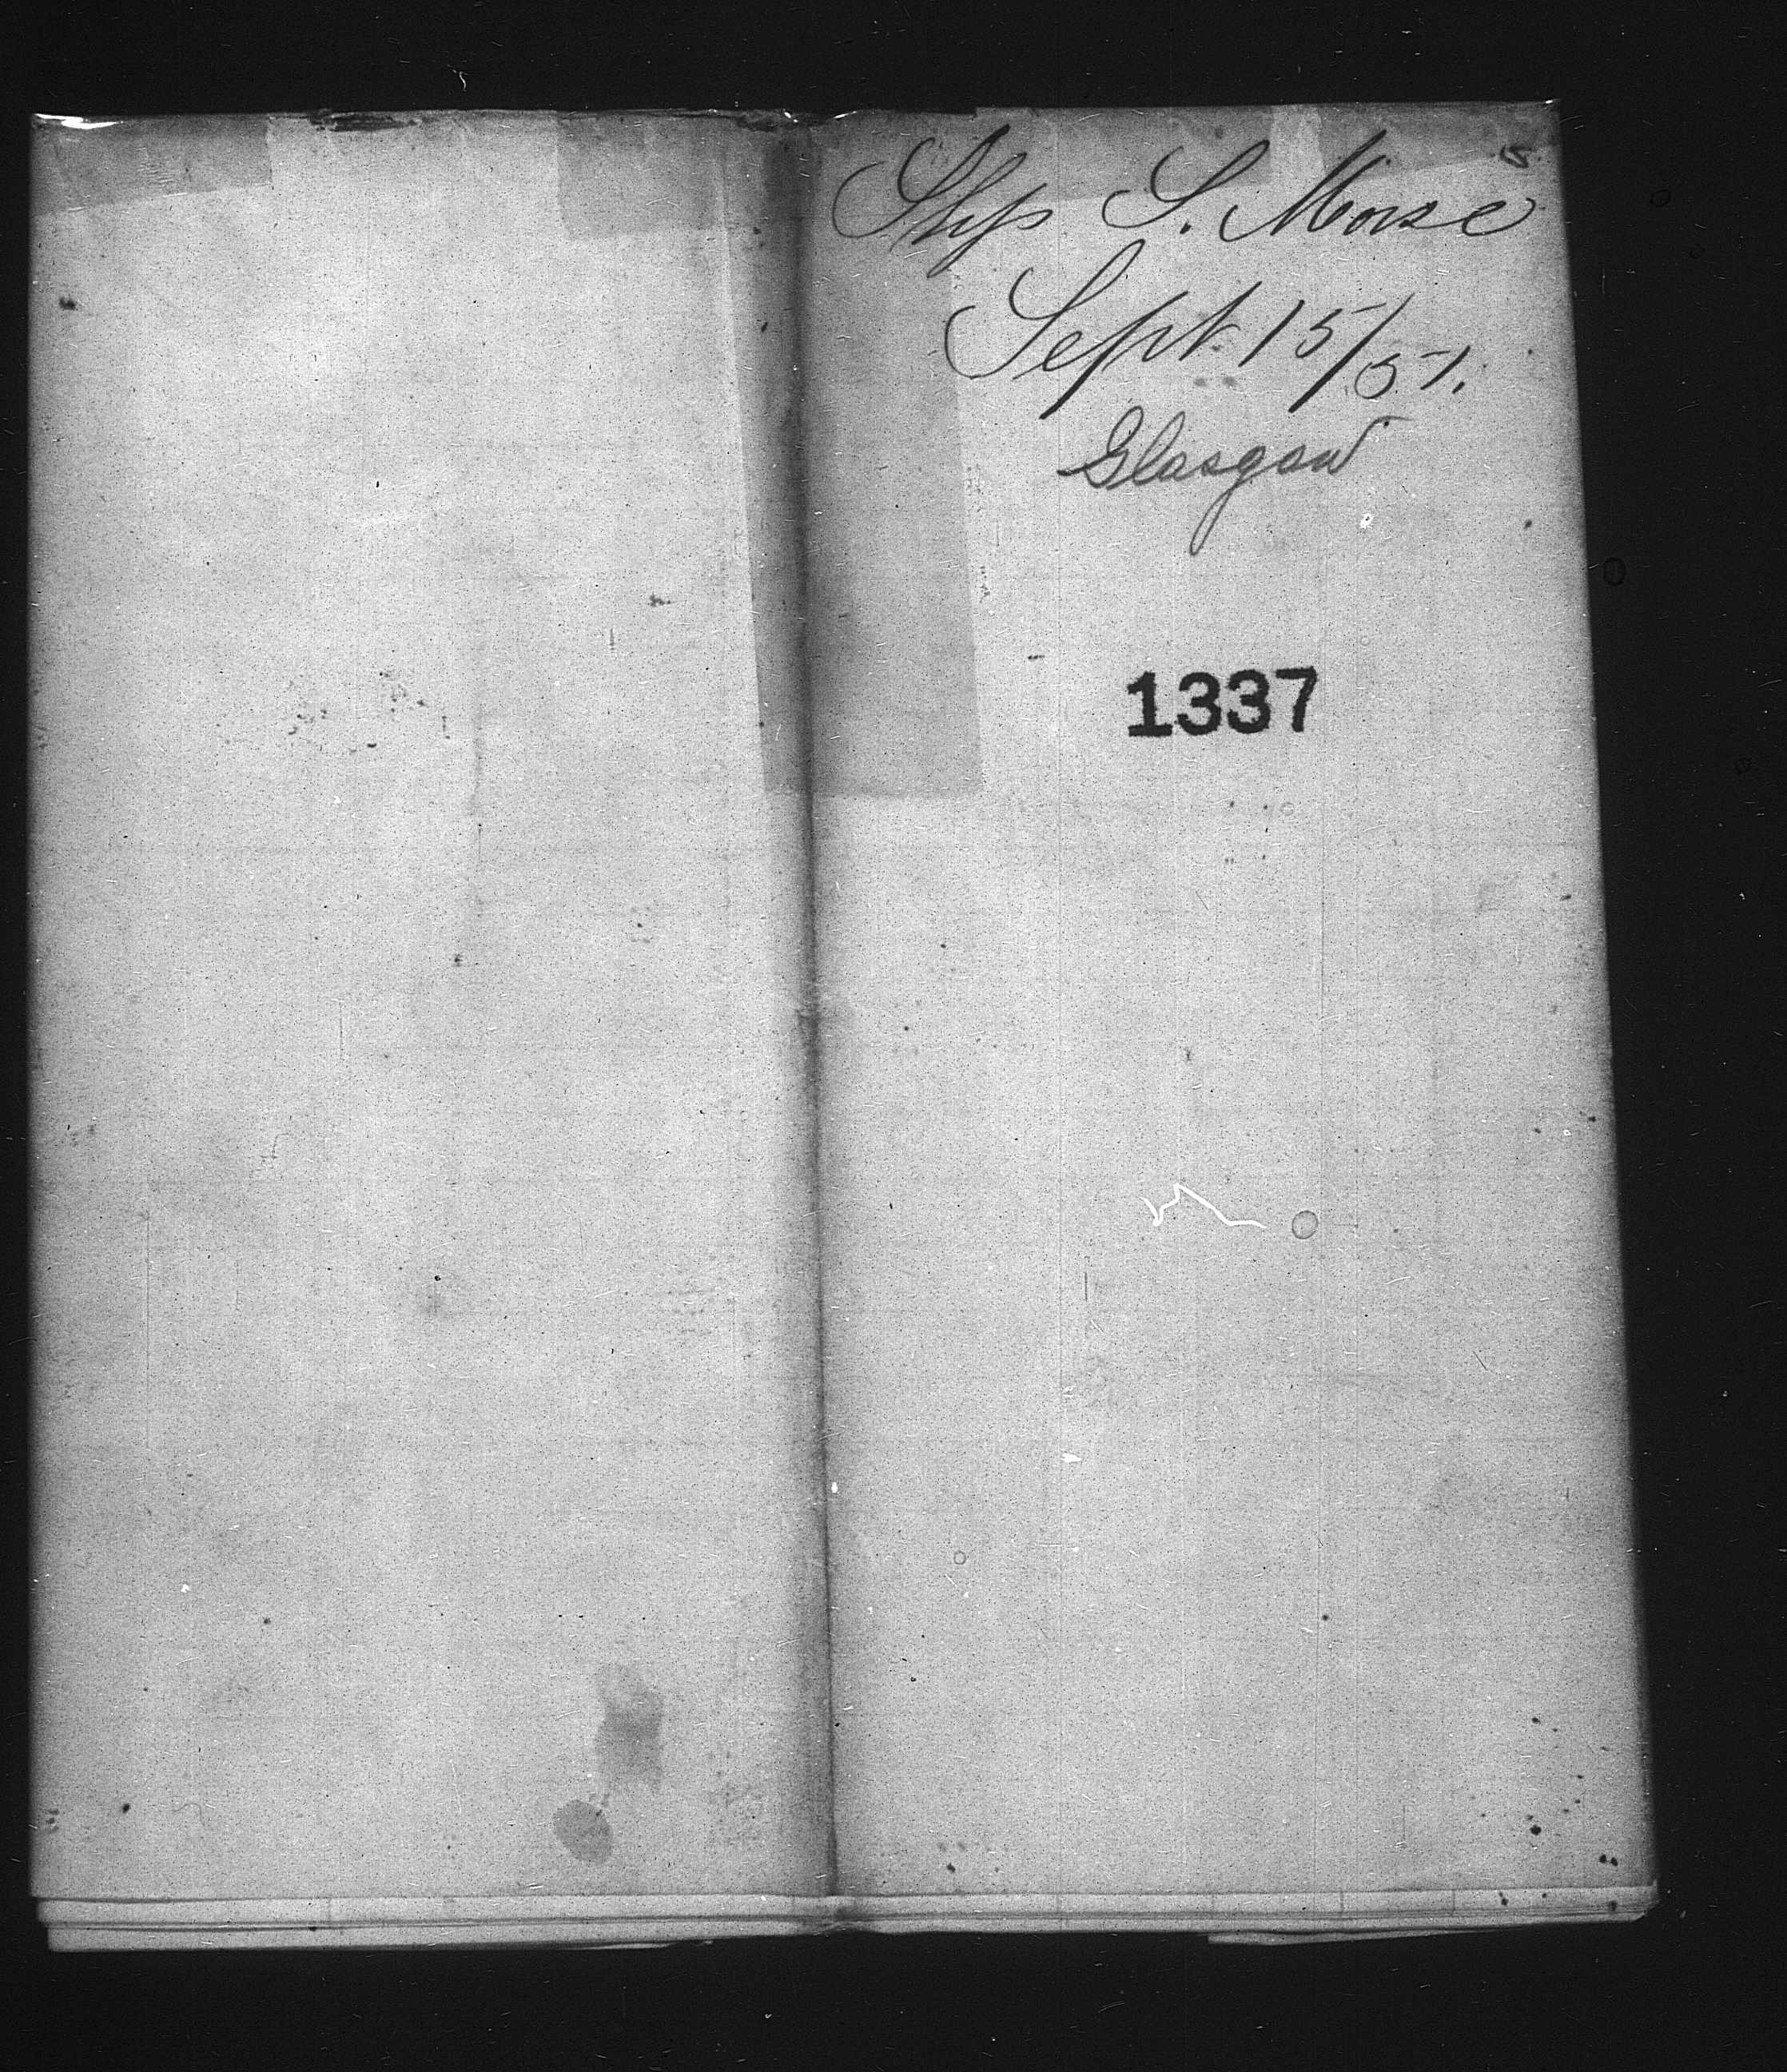 Ship S. Morse
Sept. 15/51.
Glasgow
1337